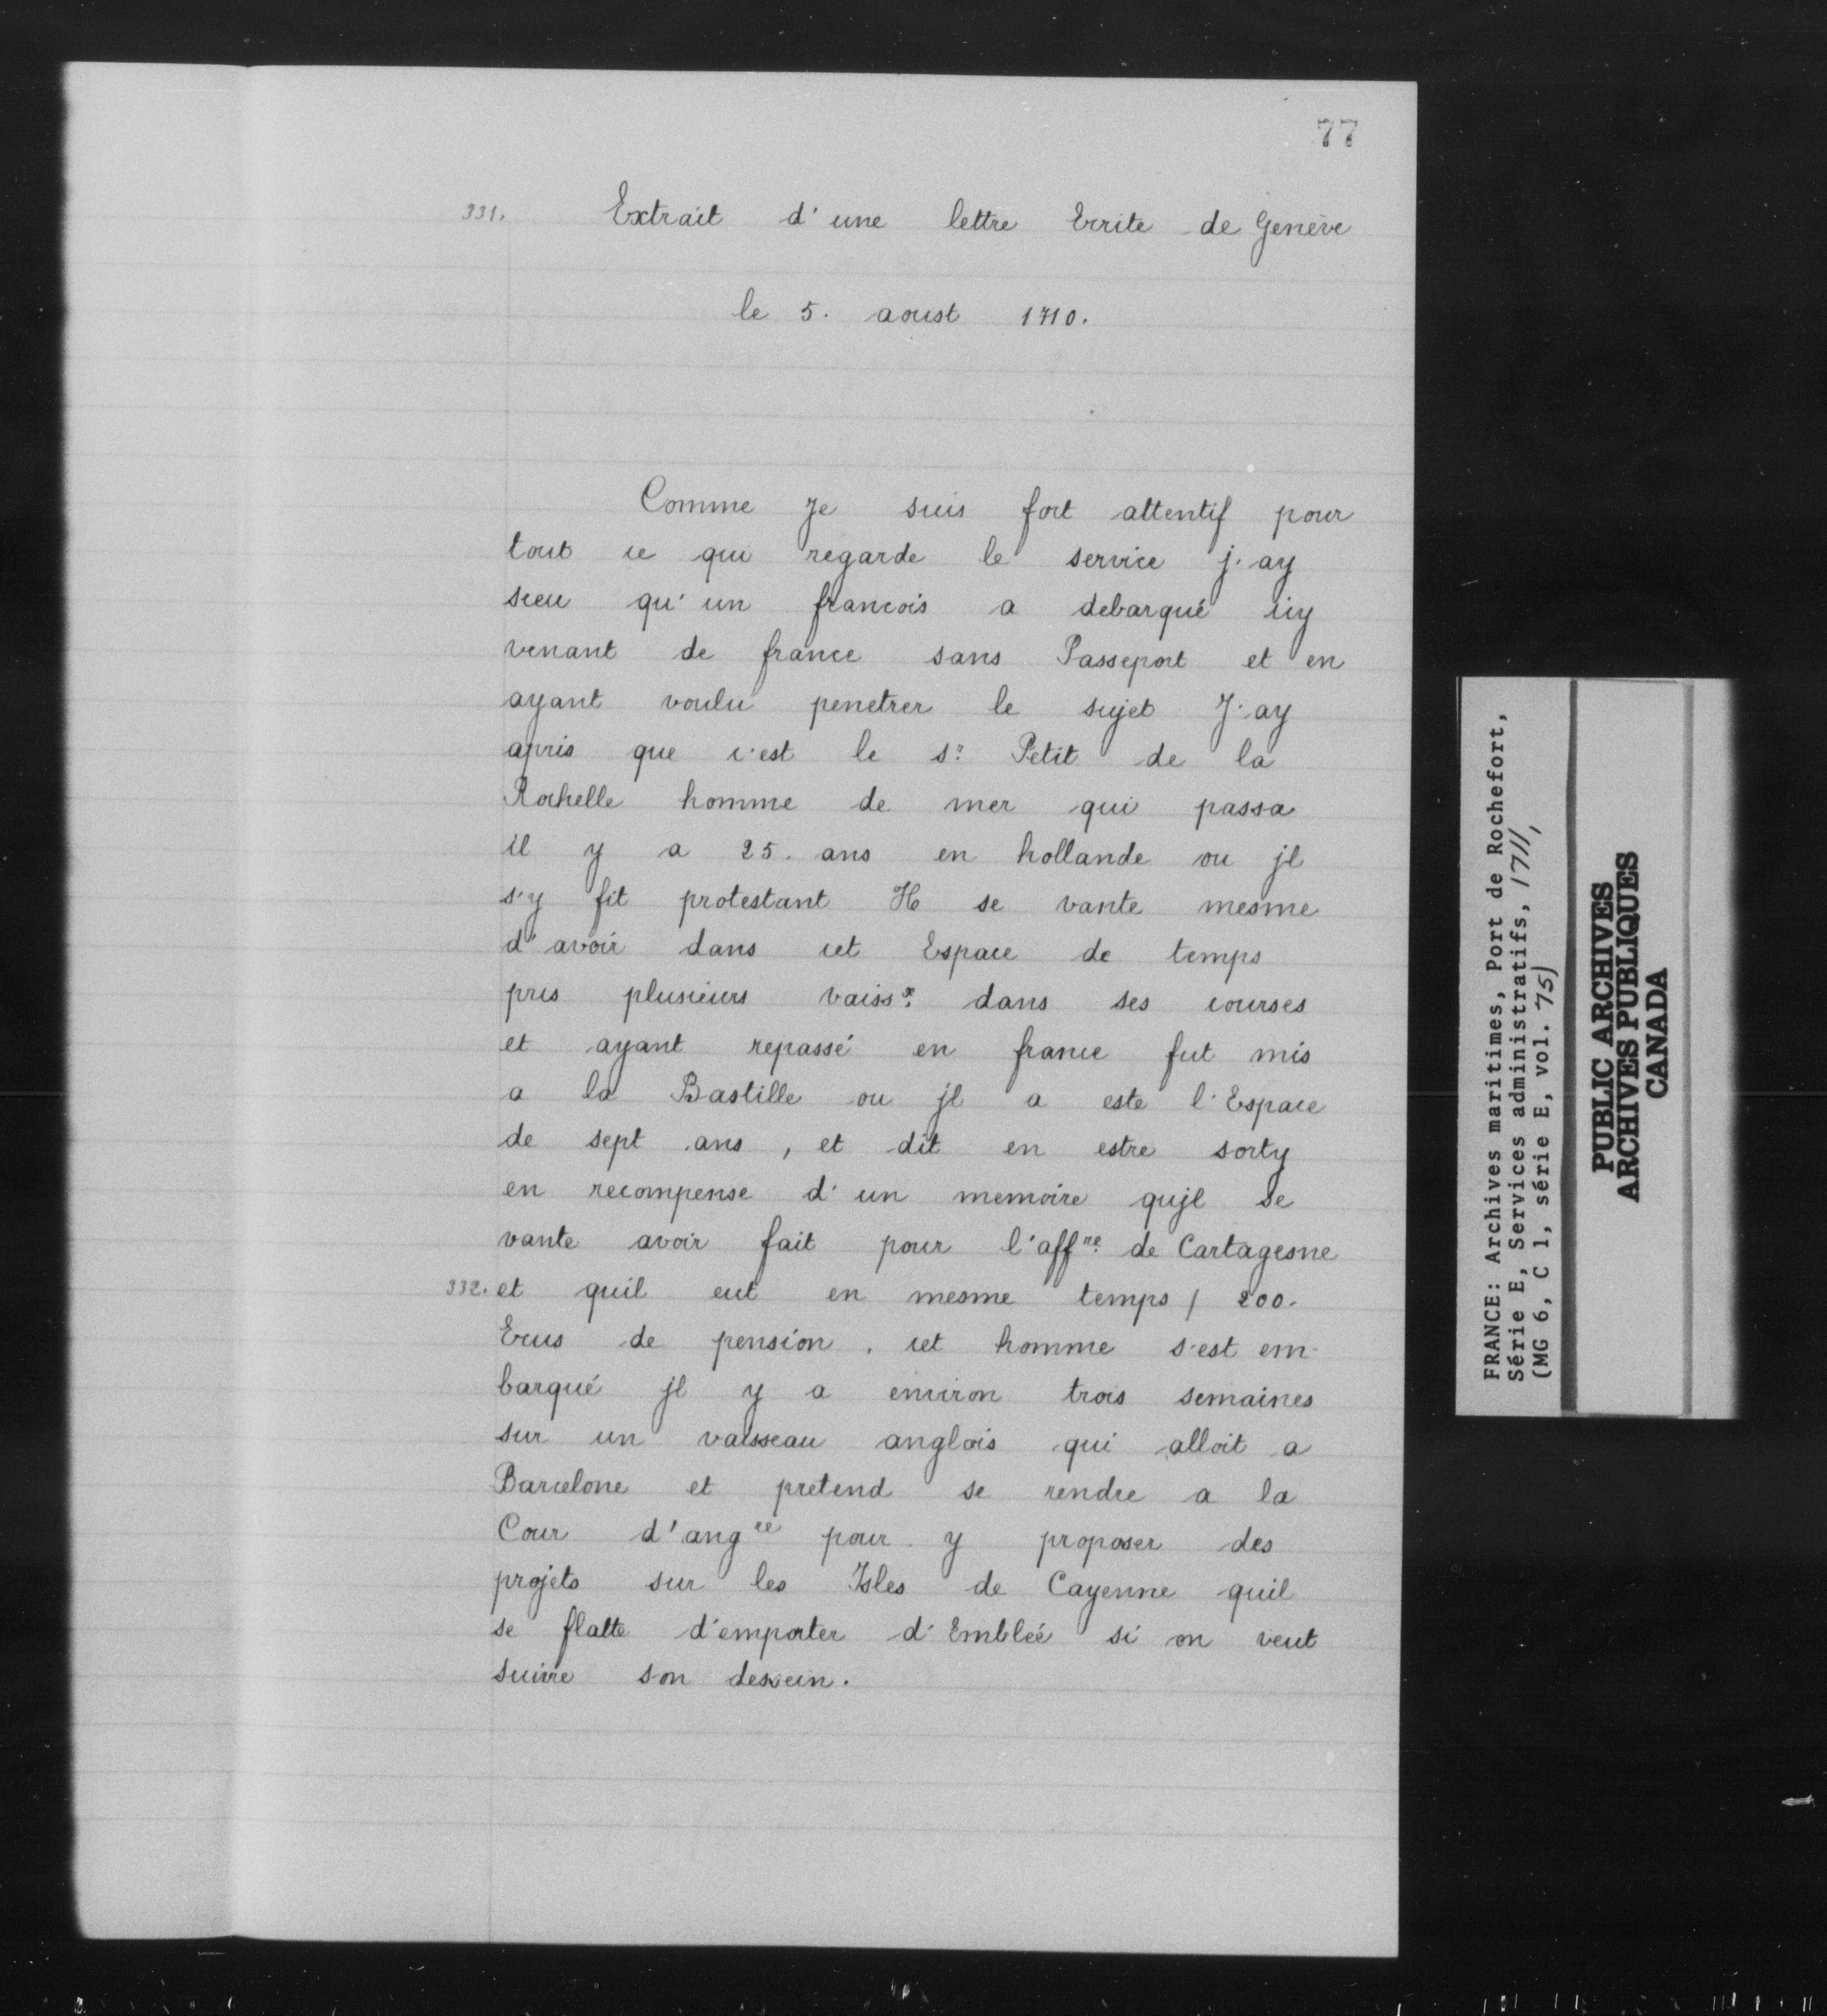 77
331. Extrait d'une lettre Ecrite de Genève
le 5. aoust 1710.
Comme Je suis fort attentif pour
tout ce qui regarde le service j'ay
sceu qu'un francois a debarqué icy
venant de france sans Passeport et en
ayant voulu penetrer le sujet J'ay
apris que c'est le sr. Petit de la
Rochelle homme de mer qui passa
il y a 25. ans en hollande ou jl
s'y fit protestant Il se vante mesme
d'avoir dans cet Espace de temps
pris plusieurs vaissx. dans ses courses
et ayant repassé en france fut mis
a la Bastille ou jl a este l'Espace
de sept ans, et dit en estre sorty
en recompense d'un memoire qujl se
vante avoir fait pour l'affre. de Cartagesne
332. et quil eut en mesme temps / 200.
Ecus de pension. cet homme s'est em-
barqué jl y a environ trois semaines
sur un vaisseau anglois qui alloit a
Barcelone et pretend se rendre a la
Cour d'angre pour y proposer des
projets sur les Isles de Cayenne quil
se flatte d'emporter d'Emblée si on veut
suivre son dessein.
FRANCE: Archives maritimes, Port de Rochefort,
Série E, Services administratifs, 1711,
(MG 6, C 1, série E, vol. 75)
PUBLIC ARCHIVES
ARCHIVES PUBLIQUES
CANADA